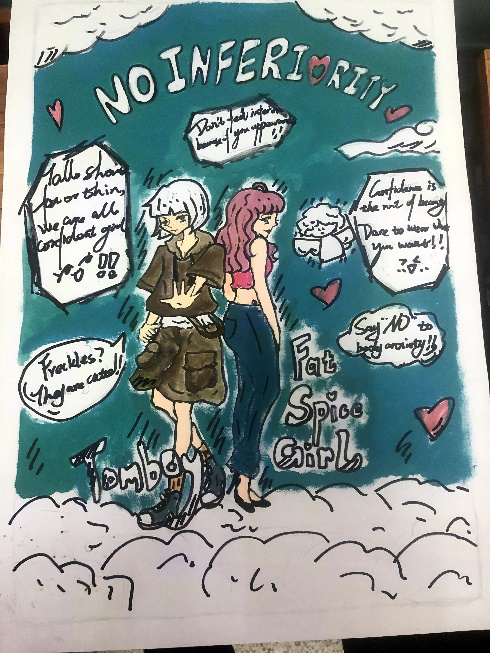 NO INFERIORITY
Don't feel inferior
because of you appearance !!
Tall, short
fat or thin,
We are all
confident girl
!!
Confidence is
the root of beauty
Dare to wear what
you want!!
Say NO to
body anxiety!!
Freckles?
They are cutest!!
Fat
Spice
Girl
Tomboy